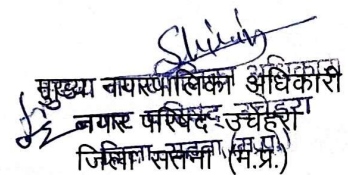 मुख्य नगरपालिका अधिकारी
नगर परिषद उचेहरा
जिला सतना (म.प्र.)